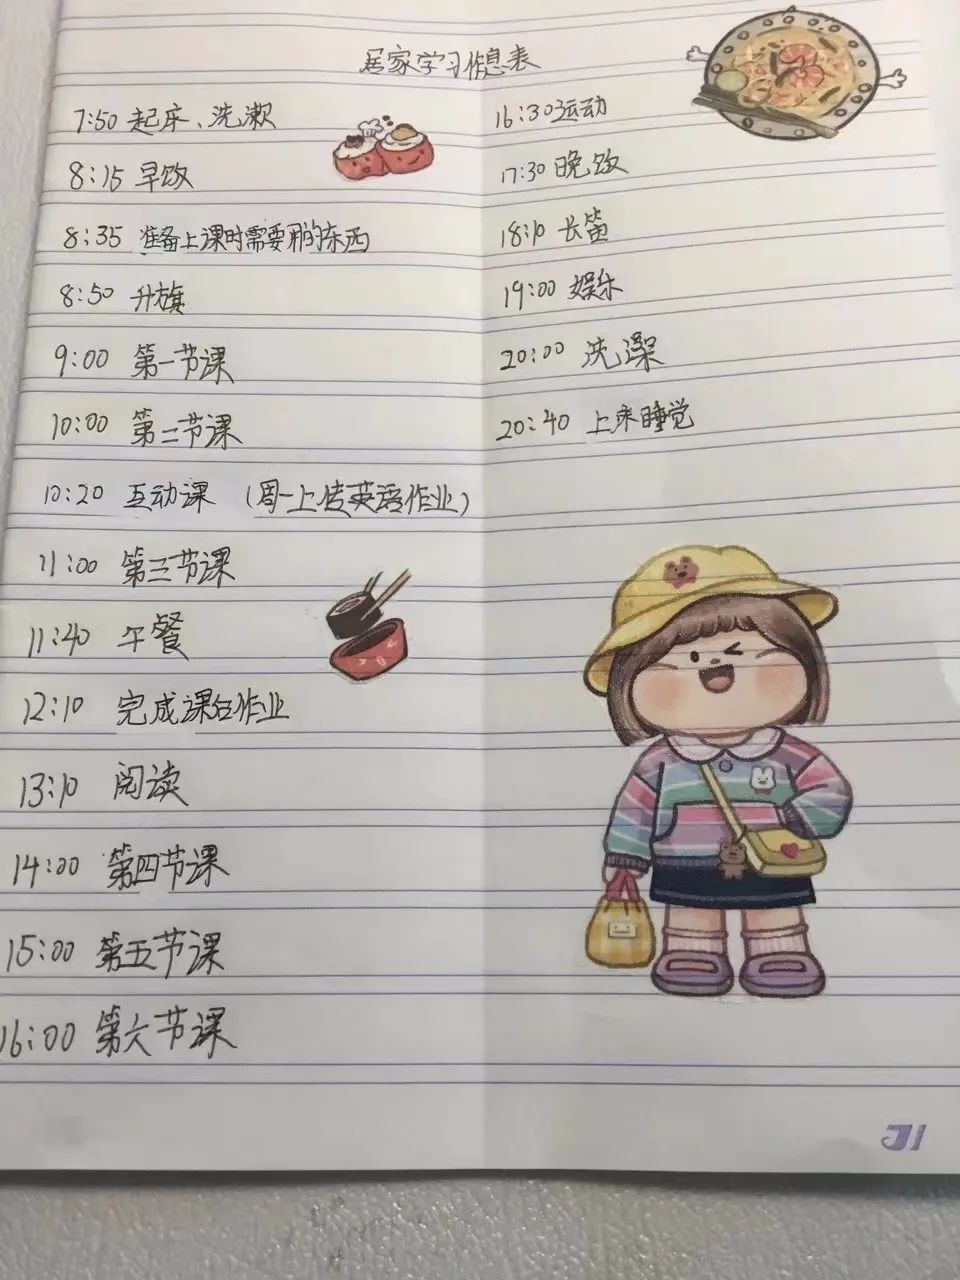 居家学习作息表
7:50 起床、洗漱
8:15 早饭
8:35 准备上课时需要用的东西
8:50 升旗
9:00 第一节课
10:00 第二节课
10:20 互动课 (周一上传英语作业)
11:00 第三节课
11:40 午餐
12:10 完成课后作业
13:10 阅读
14:00 第四节课
15:00 第五节课
16:00 第六节课
16:30 运动
17:30 晚饭
18:10 长笛
19:00 娱乐
20:00 洗澡
20:40 上床睡觉